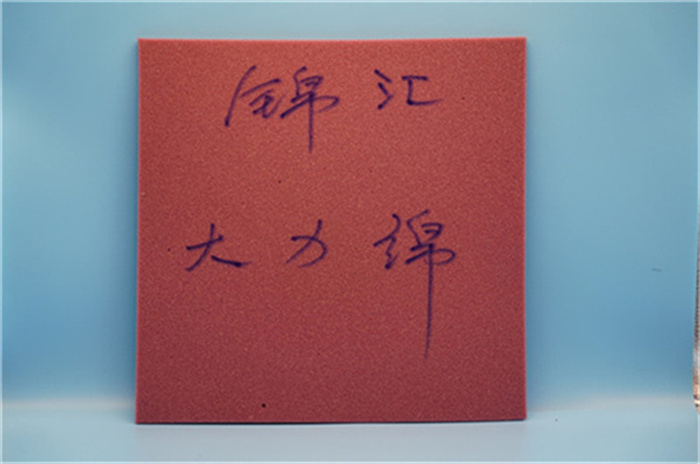 锦汇
大力绵